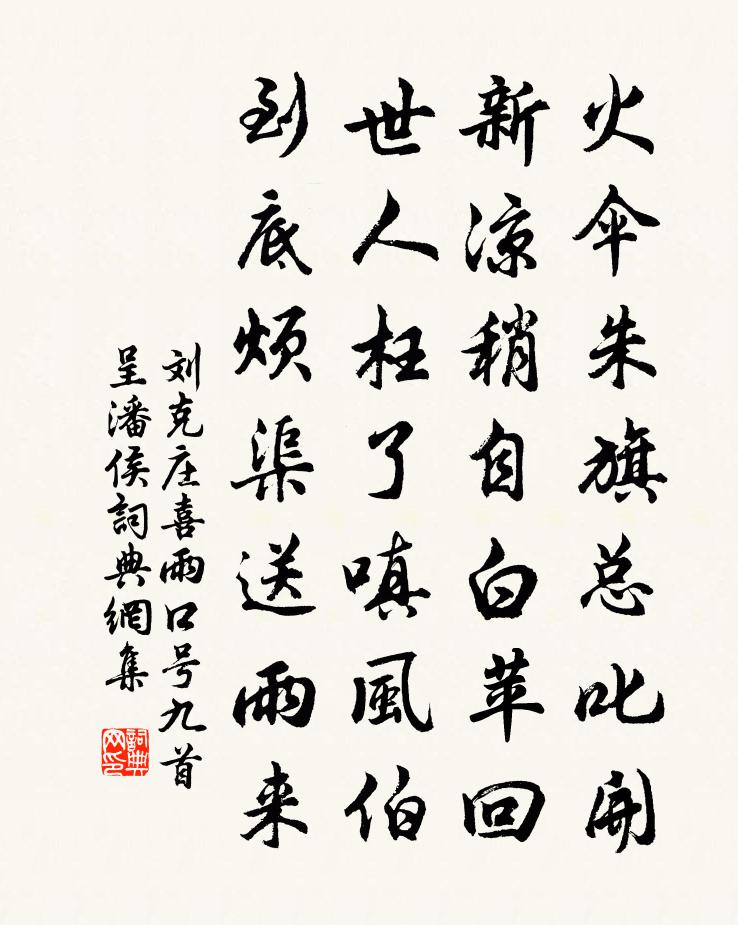 火伞朱旗总叱開
新凉稍自白苹回
世人枉了嗔風伯
到底烦渠送雨来
刘克庄喜雨口号九首
呈潘侯詞典網集
詞典网印